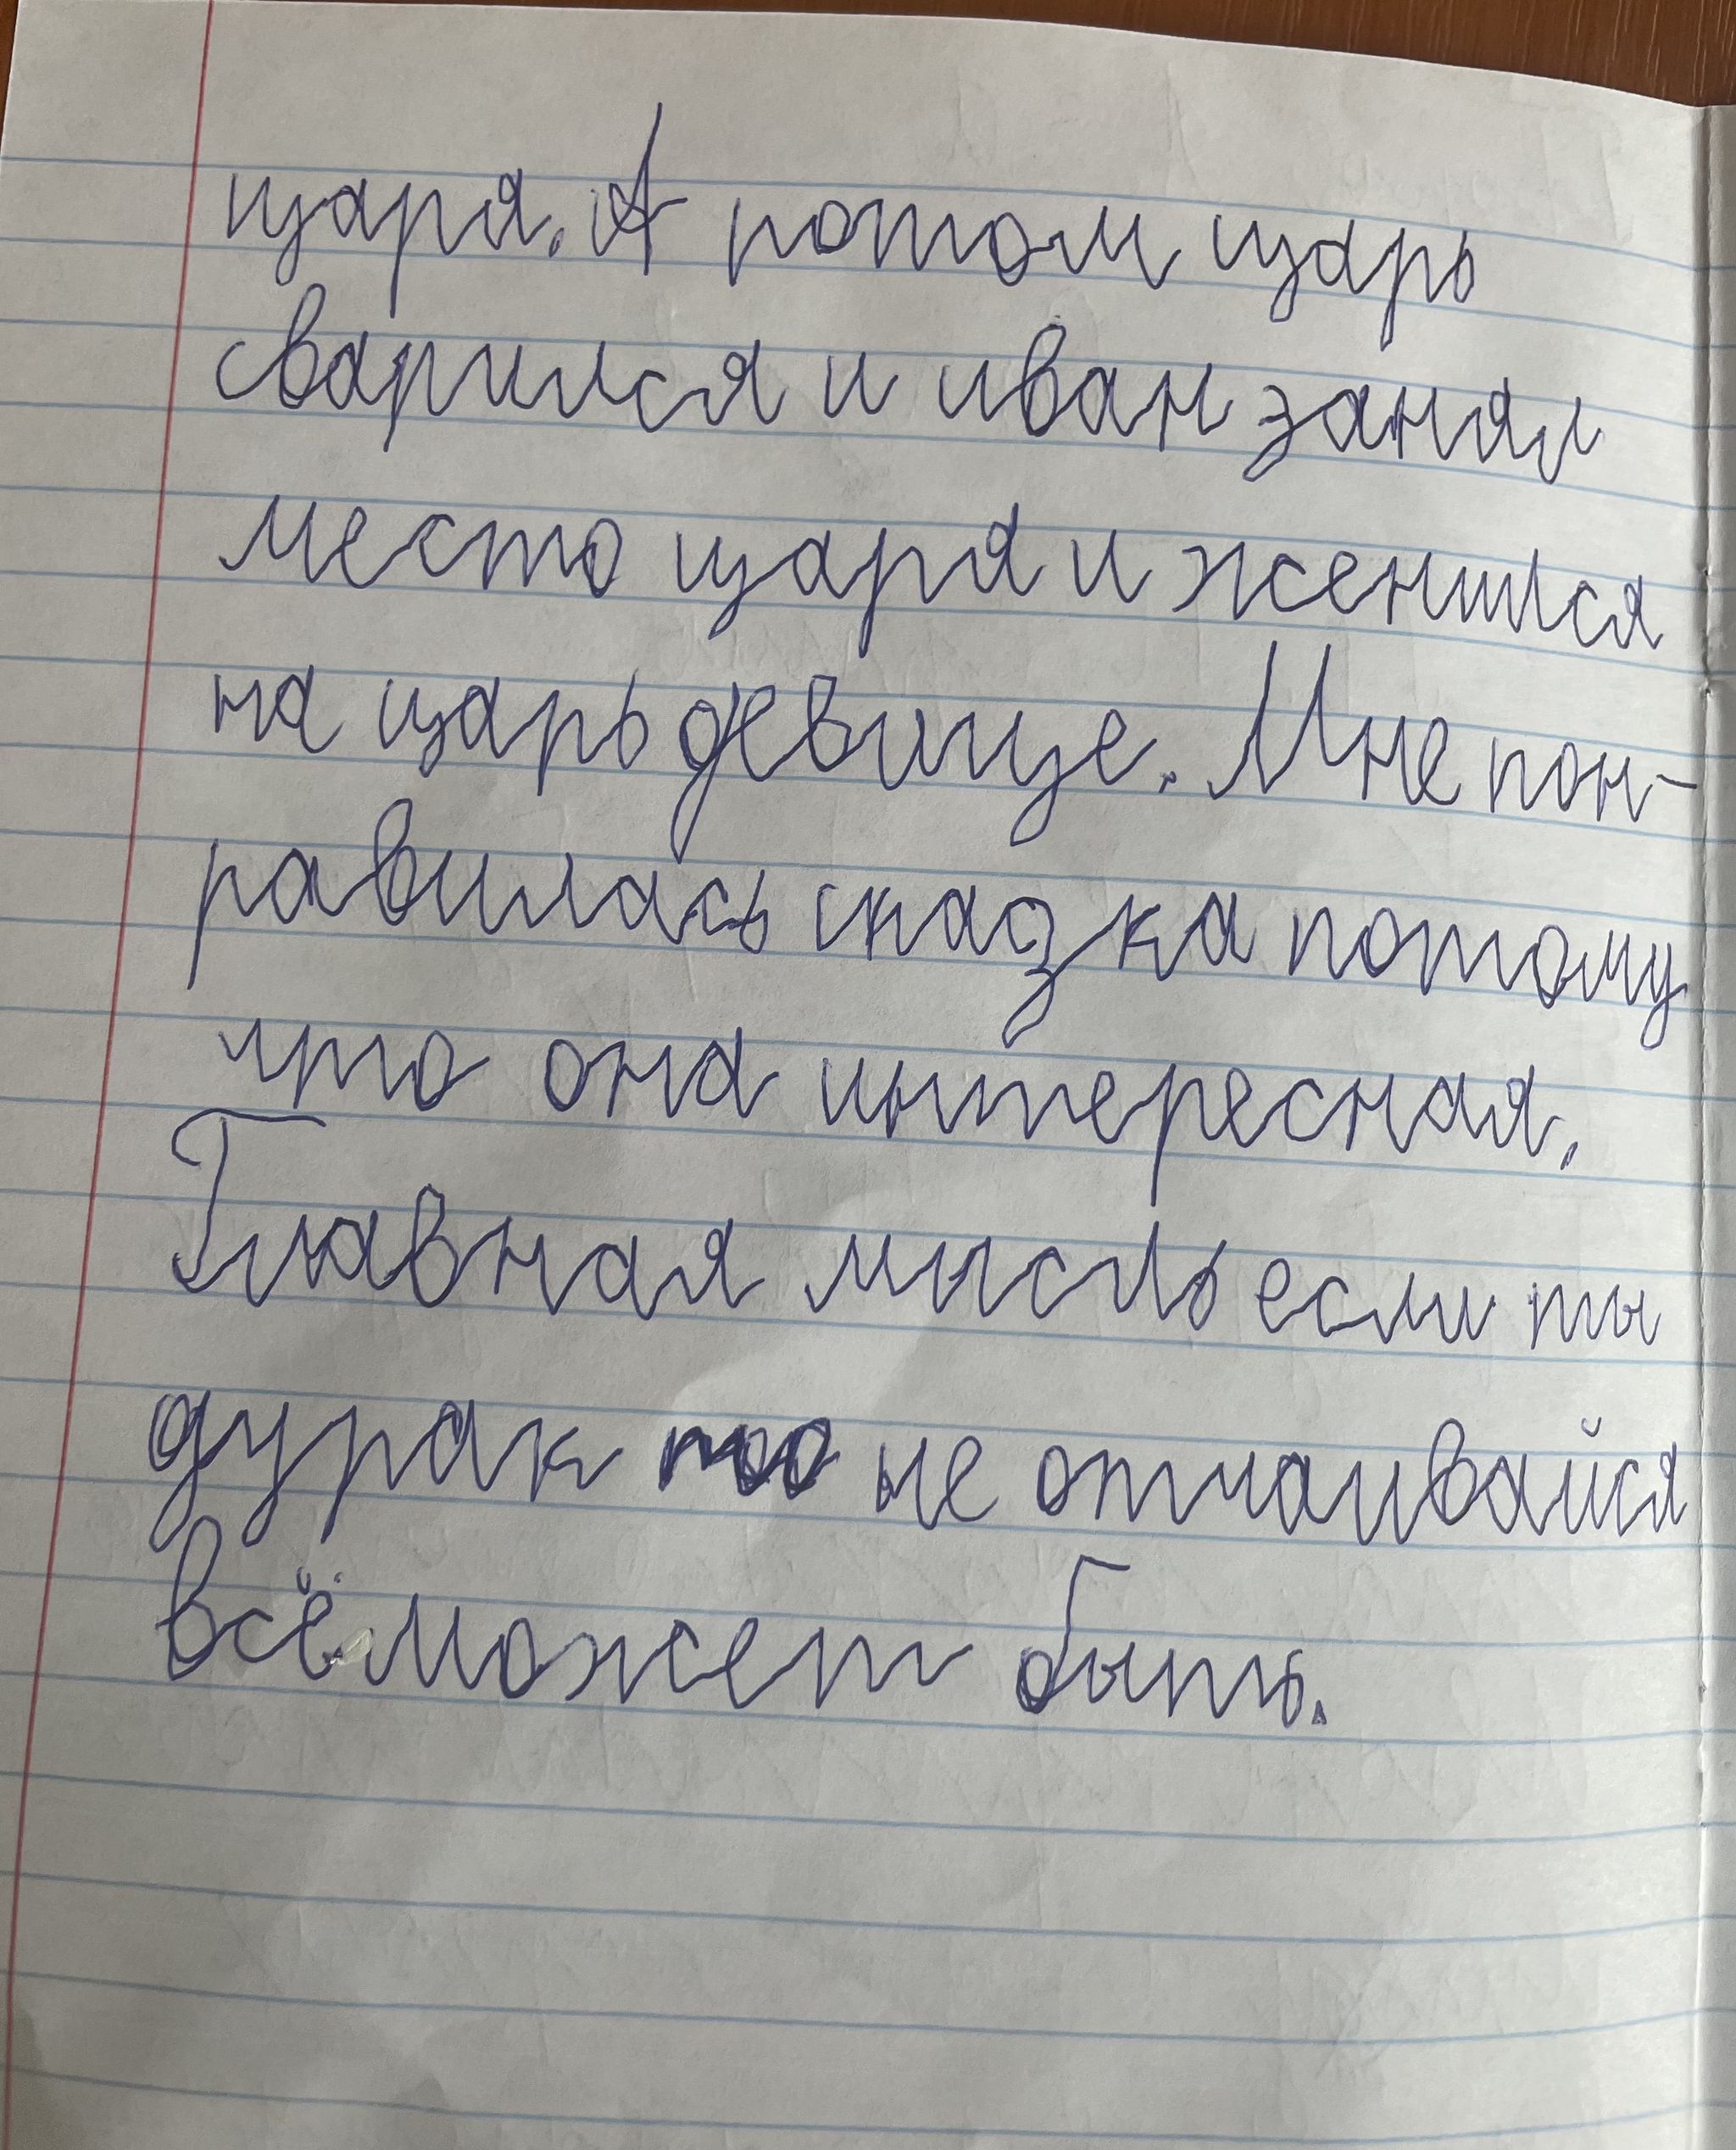 царя. А потом царь
сварился и иван занял
место царя и женился
на царь девице. Мне пон-
равилась сказка потому
что она интересная.
Главная мысль если ты
дурак то не отчаивайся
всё может быть.